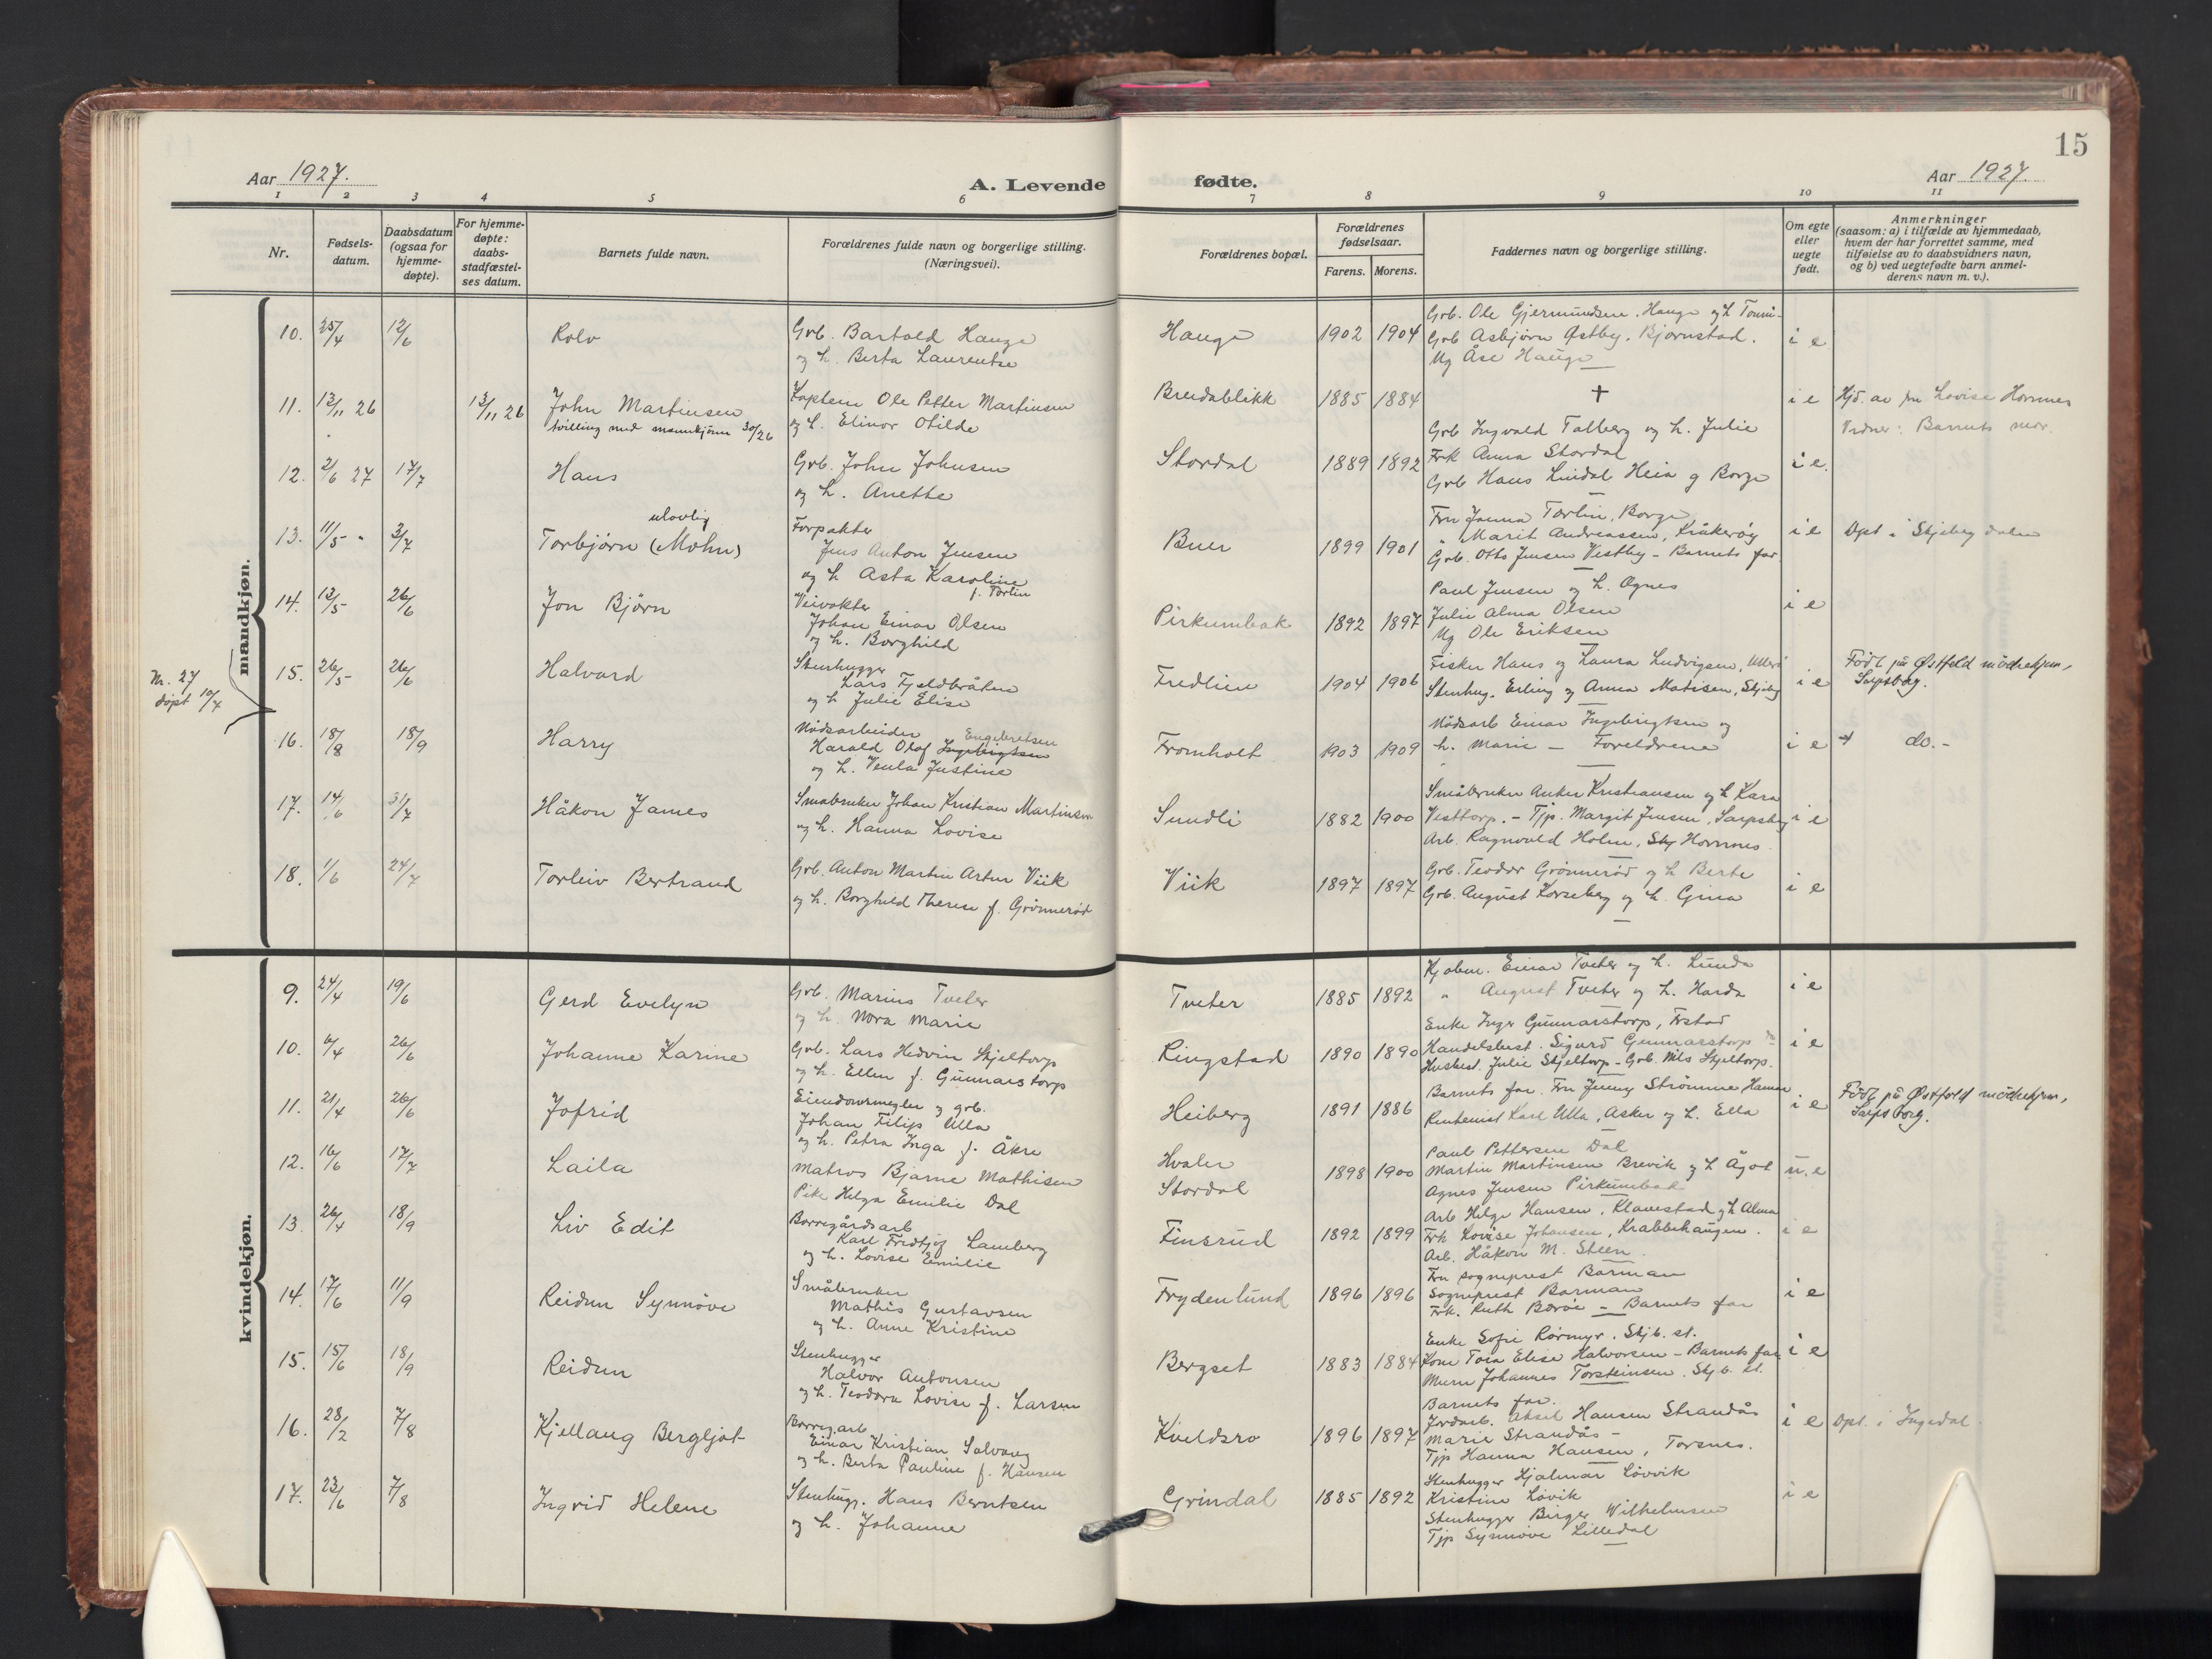 15
Aar 1927.
A. Levende fødte.
Aar 1927.
1 2 3 4 5 6 7 8 9 10 11
Nr.
Fødsels-
datum.
Daabsdatum
(ogsaa for
hjemme-
døpte).
For hjemme-
døpte:
daabs-
stadfæstel-
ses datum.
Barnets fulde navn.
Forældrenes fulde navn og borgerlige stilling.
(Næringsvei).
Forældrenes bopæl.
Forældrenes
fødselsaar.
Farens. Morens.
Faddernes navn og borgerlige stilling.
Om egte
eller
uegte
født.
Anmerkninger
(saasom: a) i tilfælde av hjemmedaab,
hvem der har forrettet samme, med
tilføielse av to daabsvidners navn,
og b) ved uegtefødte barn anmel-
derens navn m. v.).
mandkjøn.
10. 25/4 12/6 Rolv
Grb. Bartold Hauge
og h. Berta Laurentse
Hauge 1902 1904
Grb. Ole Gjermundsen, Hauge og h.
Grb Asbjørn Østby, Bjørnstad.
Ug Åse Hauge
i e
11. 13/11 26 13/11 26 John Martinsen
tvilling med mannkjønn 30/26
Kaptein Ole Petter Martinsen
og h. Elinor Otilde
Breidablikk 1885 1884
+
i e
Hjd. av fru Lovise Hornnes
Vidner: Barnets mor.
12. 2/6 27 17/7 Hans
Grb. John Johnsen
og h. Anette
Stordal 1889 1892
Grb Ingvald Talberg og h. Julie
Frk Anna Stordal
Grb Hans Lindal Heia g Borge
i e.
13. 11/5 " 3/7 ulovlig
Torbjørn (Mohn)
Forpakter
Jens Anton Jensen
og h Asta Karoline
f. Torlin
Buer 1899 1901
Fru Janna Torlin, Borge
" Marit Andreassen, Kråkerøy
Grb. Otto Jensen Vestby - Barnets far.
i e
Dpt i Skjeberg dalen
14. 13/5 26/6 Jon Bjørn
Veivokter
Johan Einar Olsen
og h. Borghild
Pirkumbak 1892 1897
Paul Jensen og h. Agnes
Julie Alma Olsen
Ug Ole Eriksen
i e
Nr. 27
døpt 10/7
15. 26/5 26/6 Halvard
Stenhugger
Lars Fjeldbråten
og h Julie Elise
Fredlien 1904 1906
Fisker Hans og Laura Ludvigsen,
Stenhug. Erling og Anna Matisen, Skjebg
i e
Födt på Østfold mödrehjem,
Sarpsborg.
16. 18/8 18/9 Harry
Nödsarbeider Engebretsen
Harald Olaf Ingebrigtsen
og h. Venla Justine
Fromholt 1903 1909
Nödsarb Einar Ingebrigtsen og
h. Marie - Foreldrene
i e
do. -
17. 14/6 31/7 Håkon James
Småbruker Johan Kristian Martinsen
og h. Hanna Lovise
Sundli 1882 1900
Småbruker Anker Kristiansen og h Kara
Vesttorp. - Tjp. Margit Jensen, Sarpsbg
Arb. Ragnvald Holm, Hornnes
i e
18. 1/6 24/7 Torleiv Bertrand
Grb. Anton Martin Artur Viik
og h. Borghild Therese f. Grönneröd
Viik 1897 1897
Grb. Teodor Grönneröd og h Berte
Grb. August Korseberg og h. Gina
i e
kvindekjøn.
9. 24/4 19/6 Gerd Evelyn
Grb. Marius Tveter
og h. Nora Marie
Tveter 1885 1892
Kjøbm. Einar Tveter og h. Lunda
" August Tveter og h. Harda
i e
10. 6/4 26/6 Johanne Karine
Grb. Lars Hedvin Skjeltorp
og h. Ellen f. Gunnarstorp
Ringstad 1890 1890
Enke Inger Gunnarstorp, Frstad
Handelsbest. Sigurd Gunnarstorp
Husbest. Julie Skjeltorp - Grb. Nils Skjeltorp.
i e
11. 21/4 26/6 Jofrid
Eiendomsmegler og grb.
Johan Filip Ulla
og h. Petra Inga f. Åkre
Heiberg 1891 1886
Barnets far. Fru Jenny Strömme Hamar
Rentenist Karl Ulla, Asker og h. Ella
i e
Födt på Østfold mödrehjem,
Sarpsborg.
12. 16/6 17/7 Laila
Matros Bjarne Mathisen
Pike Helga Emilie Dal
Hvaler
Stordal
1898 1900
Paul Pettersen Dal
Martin Martinsen Brevik og h Ågot
Agnes Jensen Pirkumbak
u. e
13. 26/4 18/9 Liv Edit
Borregårdsarb
Karl Fredtjof Lamberg
og h. Lovise Emilie
Finsrud 1892 1899
Arb Helge Hansen, Klavestad og h Alma
Frk Lovise Johansen, Krabbehaugen.
Arb. Håkon M. Steen.
i e
14. 17/6 11/9 Reidun Synnöve
Småbruker
Mathis Gustavsen
og h. Anne Kristine
Frydenlund 1896 1896
Fru sogneprest Barman
Sogneprest Barman
Frk. Ruth Barøe - Barnets far
i e
15. 15/6 18/9 Reidun
Stenhugger
Halvor Antonsen
og h. Teodora Lovise f. Larsen
Bergset 1883 1884
Enke Sofie Rörmyr. Skjb. st.
Kone Tora Elise Halvorsen - Barnets far
Murer Johannes Torsteinsen. Skjb. st.
i e
16. 28/2 7/8 Kjellaug Bergljot
Borreg.arb
Einar Kristian Solvang
og h. Berta Pauline f. Hansen
Kveldsro 1896 1897
Barnets far.
Jordarb. Aksel Hansen Strandås
Marie Strandås -
Tjp Hanna Hansen, Torsnes.
i e
Dpt. i Ingedal.
17. 23/6 7/8 Ingrid Helene
Stenhugg. Hans Berntsen
og h. Johanne
Grindal 1885 1892
Stenhugger Hjalmar Lövvik
Kristine Lövik
Stenhugger Birger Wilhelmsen
Tjp Synnöve Lilledal
i e